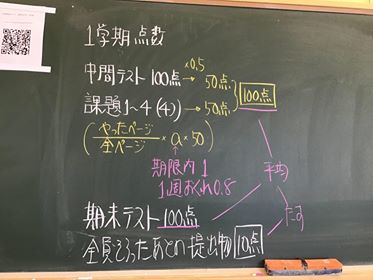 1学期点数
中間テスト 100点 ×0.5 → 50点
課題1~4(4) → 50点
100点
(やったページ/全ページ × a × 50)
期限内 1
1週おくれ0.8
平均
期末テスト 100点
たす
全員そろったあとの提出物 10点